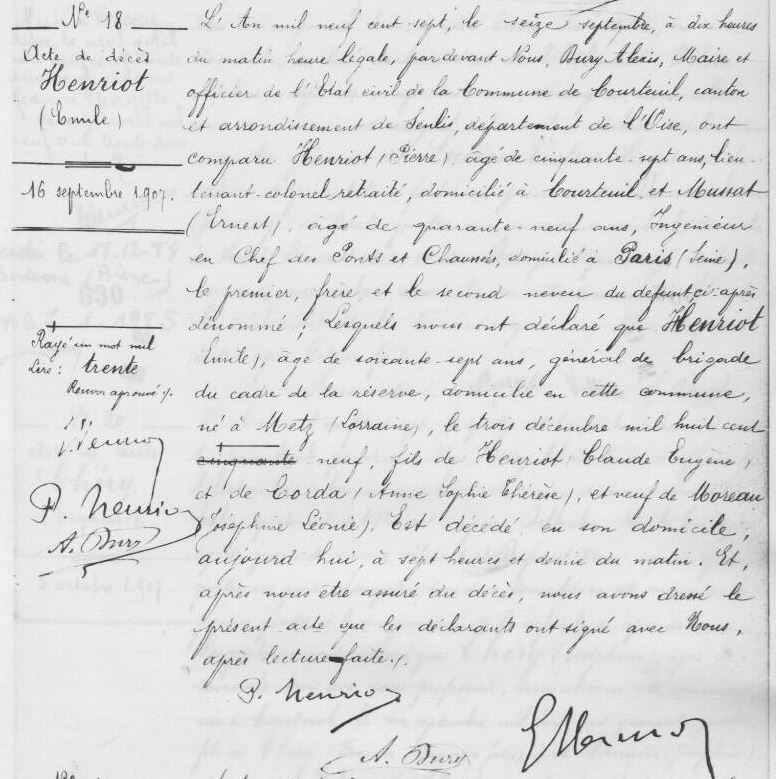 N° 18
Acte de décès
Henriot
(Emile)
16 septembre 1907.
L'An mil neuf cent sept, le seize septembre, à dix heures
du matin heure légale, pardevant Nous, Bury Alexis, Maire et
officier de l'Etat civil de la Commune de Courteuil, canton
et arrondissement de Senlis, département de l'Oise, ont
comparu Henriot (Pierre), âgé de cinquante-sept ans, lieu-
tenant-colonel retraité, domicilié à Courteuil, et Mussat
(Ernest), âgé de quarante-neuf ans, Ingénieur
en Chef des Ponts et Chaussées, domicilié à Paris (Seine),
le premier, frère, et le second neveu du défunt ci-après
dénommé ; Lesquels nous ont déclaré que Henriot
Emile), âgé de soixante-sept ans, général de brigade
du cadre de la réserve, domicilié en cette commune,
né à Metz (Lorraine), le trois décembre mil huit cent
cinquante neuf, fils de Henriot Claude Eugène,
et de Corda (Anne Sophie Thérèse), et veuf de Moreau
(Joséphine Léonie). Est décédé en son domicile,
aujourd'hui, à sept heures et demie du matin. Et,
après nous être assuré du décès, nous avons dressé le
présent acte que les déclarants ont signé avec Nous,
après lecture faite ./.
Rayé un mot nul
Lire : trente
Renvoi approuvé ./.
P. Henriot
A. Bury
P. Henriot
A. Bury